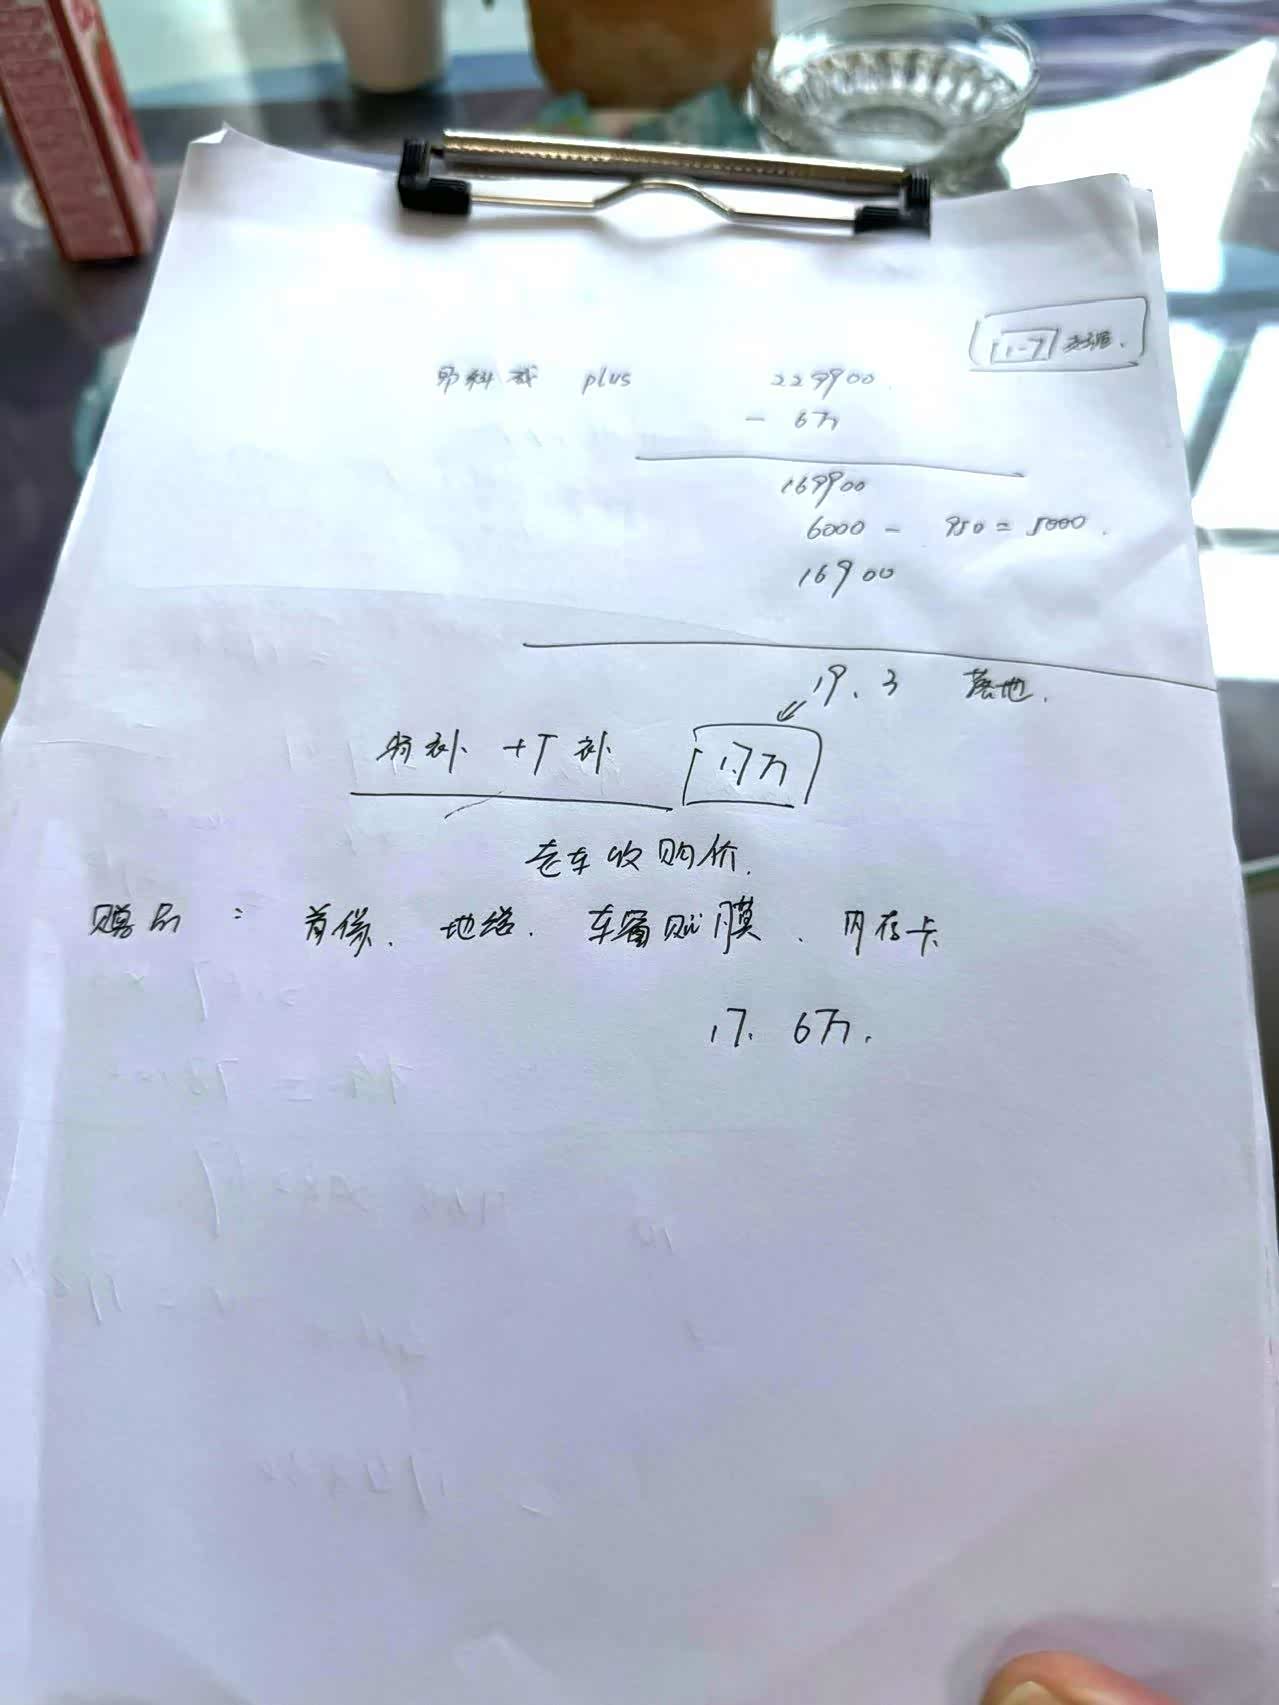 1.7
昂科威 plus 229900
- 6万
169900
6000 - 950 = 5000.
16900
19.3 落地.
厂补 1.7万
老车收购价.
赠品: 首保、地毯. 车窗贴膜、内存卡
17.6万.